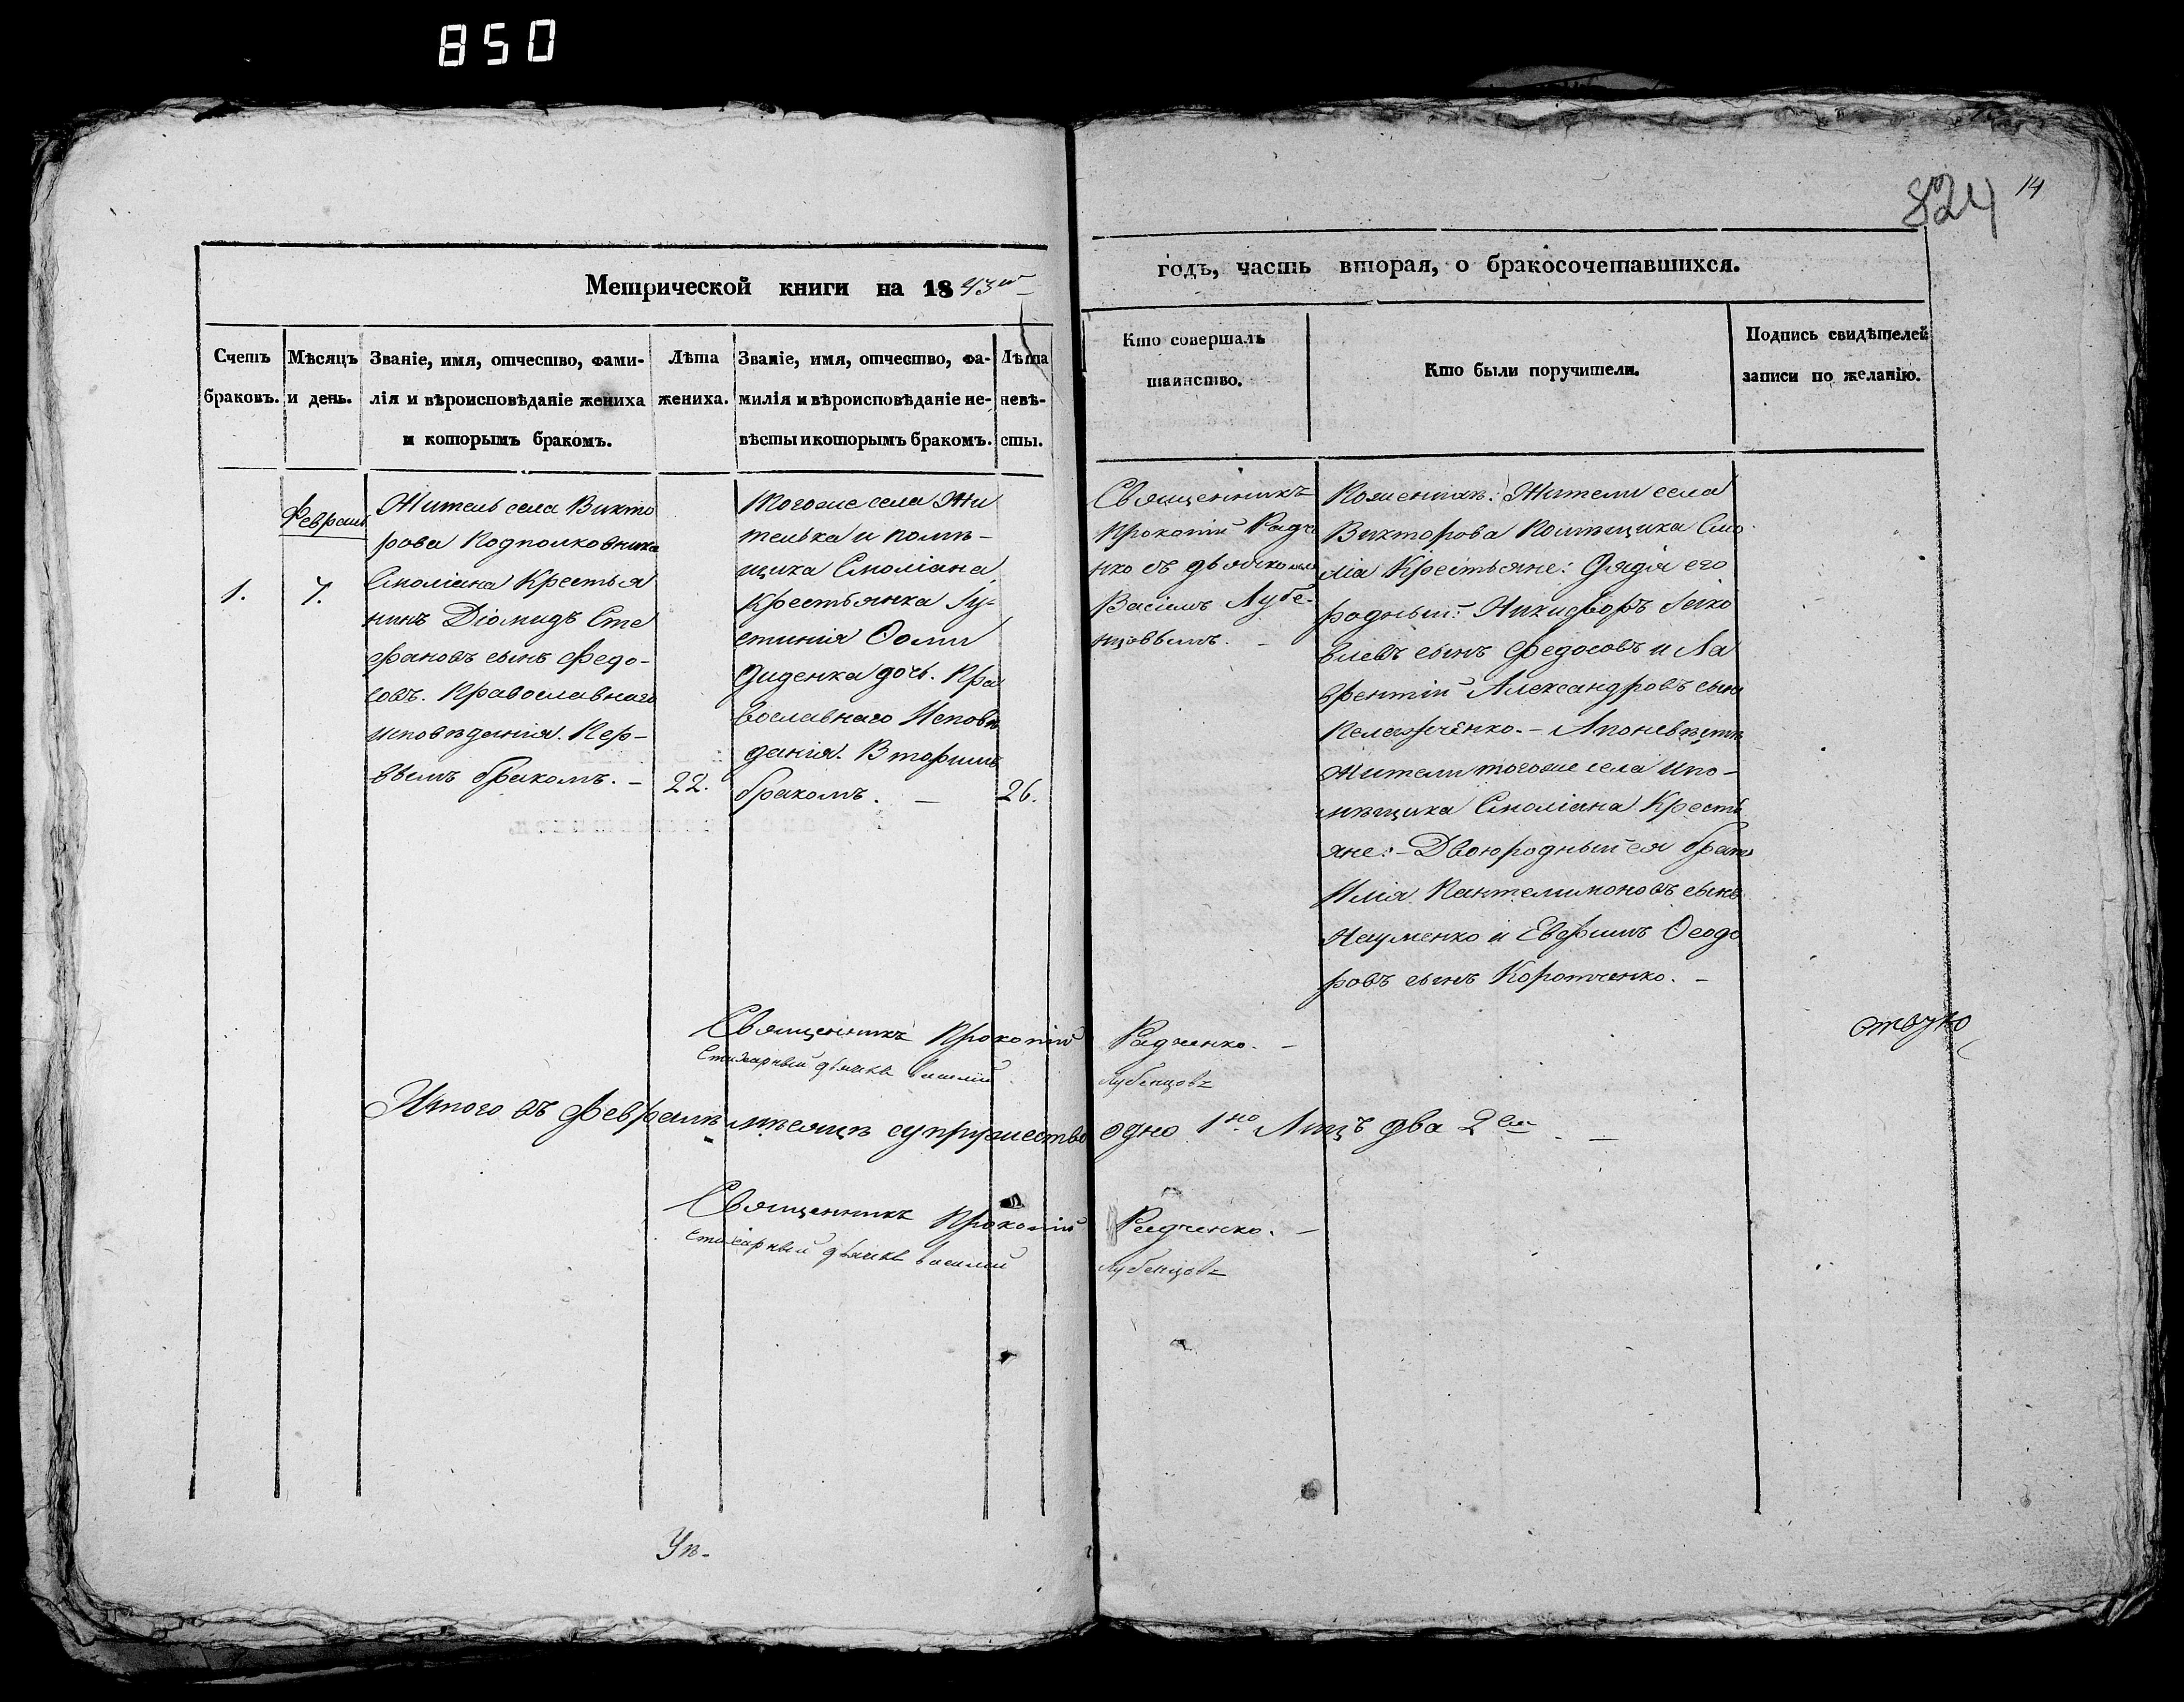 850
824 14
Метрической книги на 1843й
годъ, часть вторая, о бракосочетавшихся.
Счетъ
браковъ.
Мѣсяцъ
и день.
Званіе, имя, отчество, фами-
лія и вѣроисповѣданіе жениха
и которымъ бракомъ.
Лѣта
жениха.
Званіе, имя, отчество, фа-
милія и вѣроисповѣданіе не-
вѣсты и которымъ бракомъ.
Лѣта
невѣ-
сты.
Кто совершалъ
таинство.
Кто были поручители.
Подпись свидѣтелей
записи по желанію.
1.
Февраль
7.
Житель села Викто
рова Подполковника
Смоліана Крестья
нинъ Діомидъ Сте
фановъ сынъ Федо-
совъ. Православнаго
исповѣданія. Пер-
вымъ бракомъ. –
22.
Тогоже села Жи
телька и помѣ-
щика Смоліана
Крестьянка Іу-
стинія Ѳомы
Диденка дочь. Пра
вославнаго Исповѣ
данія. Вторымъ
бракомъ. –
26.
Священникъ
Прокопій Радче
нко съ дьячкомъ
Васіиль Лубе-
нцовымъ. –
По женихѣ: Жители села
Викторова Помѣщика Смо
ліа Крестьяне: Дядя его
родный: Никифоръ Яко
влевъ сынъ Федосовъ и Ла
врентій Александровъ сынъ
– А по невѣстѣ
Жители тогоже села и по-
мѣщика Смоліана Кресть
яне: – Двоюродный ея братъ
Илія Пантелимоновъ сынъ
Науменко и Евфимъ Ѳеодо
ровъ сынъ Коротченко. –
Священникъ Прокопій Радченко. –
Стихарный дьячекъ Василій Лубенцовъ
Итого въ Февралѣ мѣсяцѣ супружество одно 1но Лицъ два 2ва. –
Священникъ Прокопій Радченко. –
Стихарный дьячекъ Василій Лубенцовъ